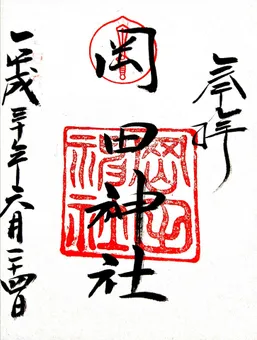 奉拝
岡田神社
岡田神社
平成三十年六月二十四日